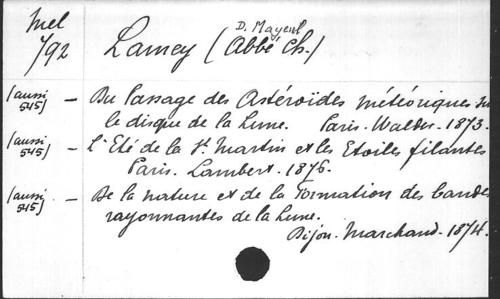 Mel
792
D. Mayeul
Lamey (Abbé Ch.)
(aussi 545) — Du Passage des Astéroïdes météoriques sur
le disque de la Lune. Paris. Walder. 1873.
(aussi 545) — L'Eté de la St Martin et les Etoiles filantes
Paris. Lambert. 1876.
(aussi 545) — De la nature et de la formation des bandes
rayonnantes de la Lune.
Dijon. Marchand. 1874.